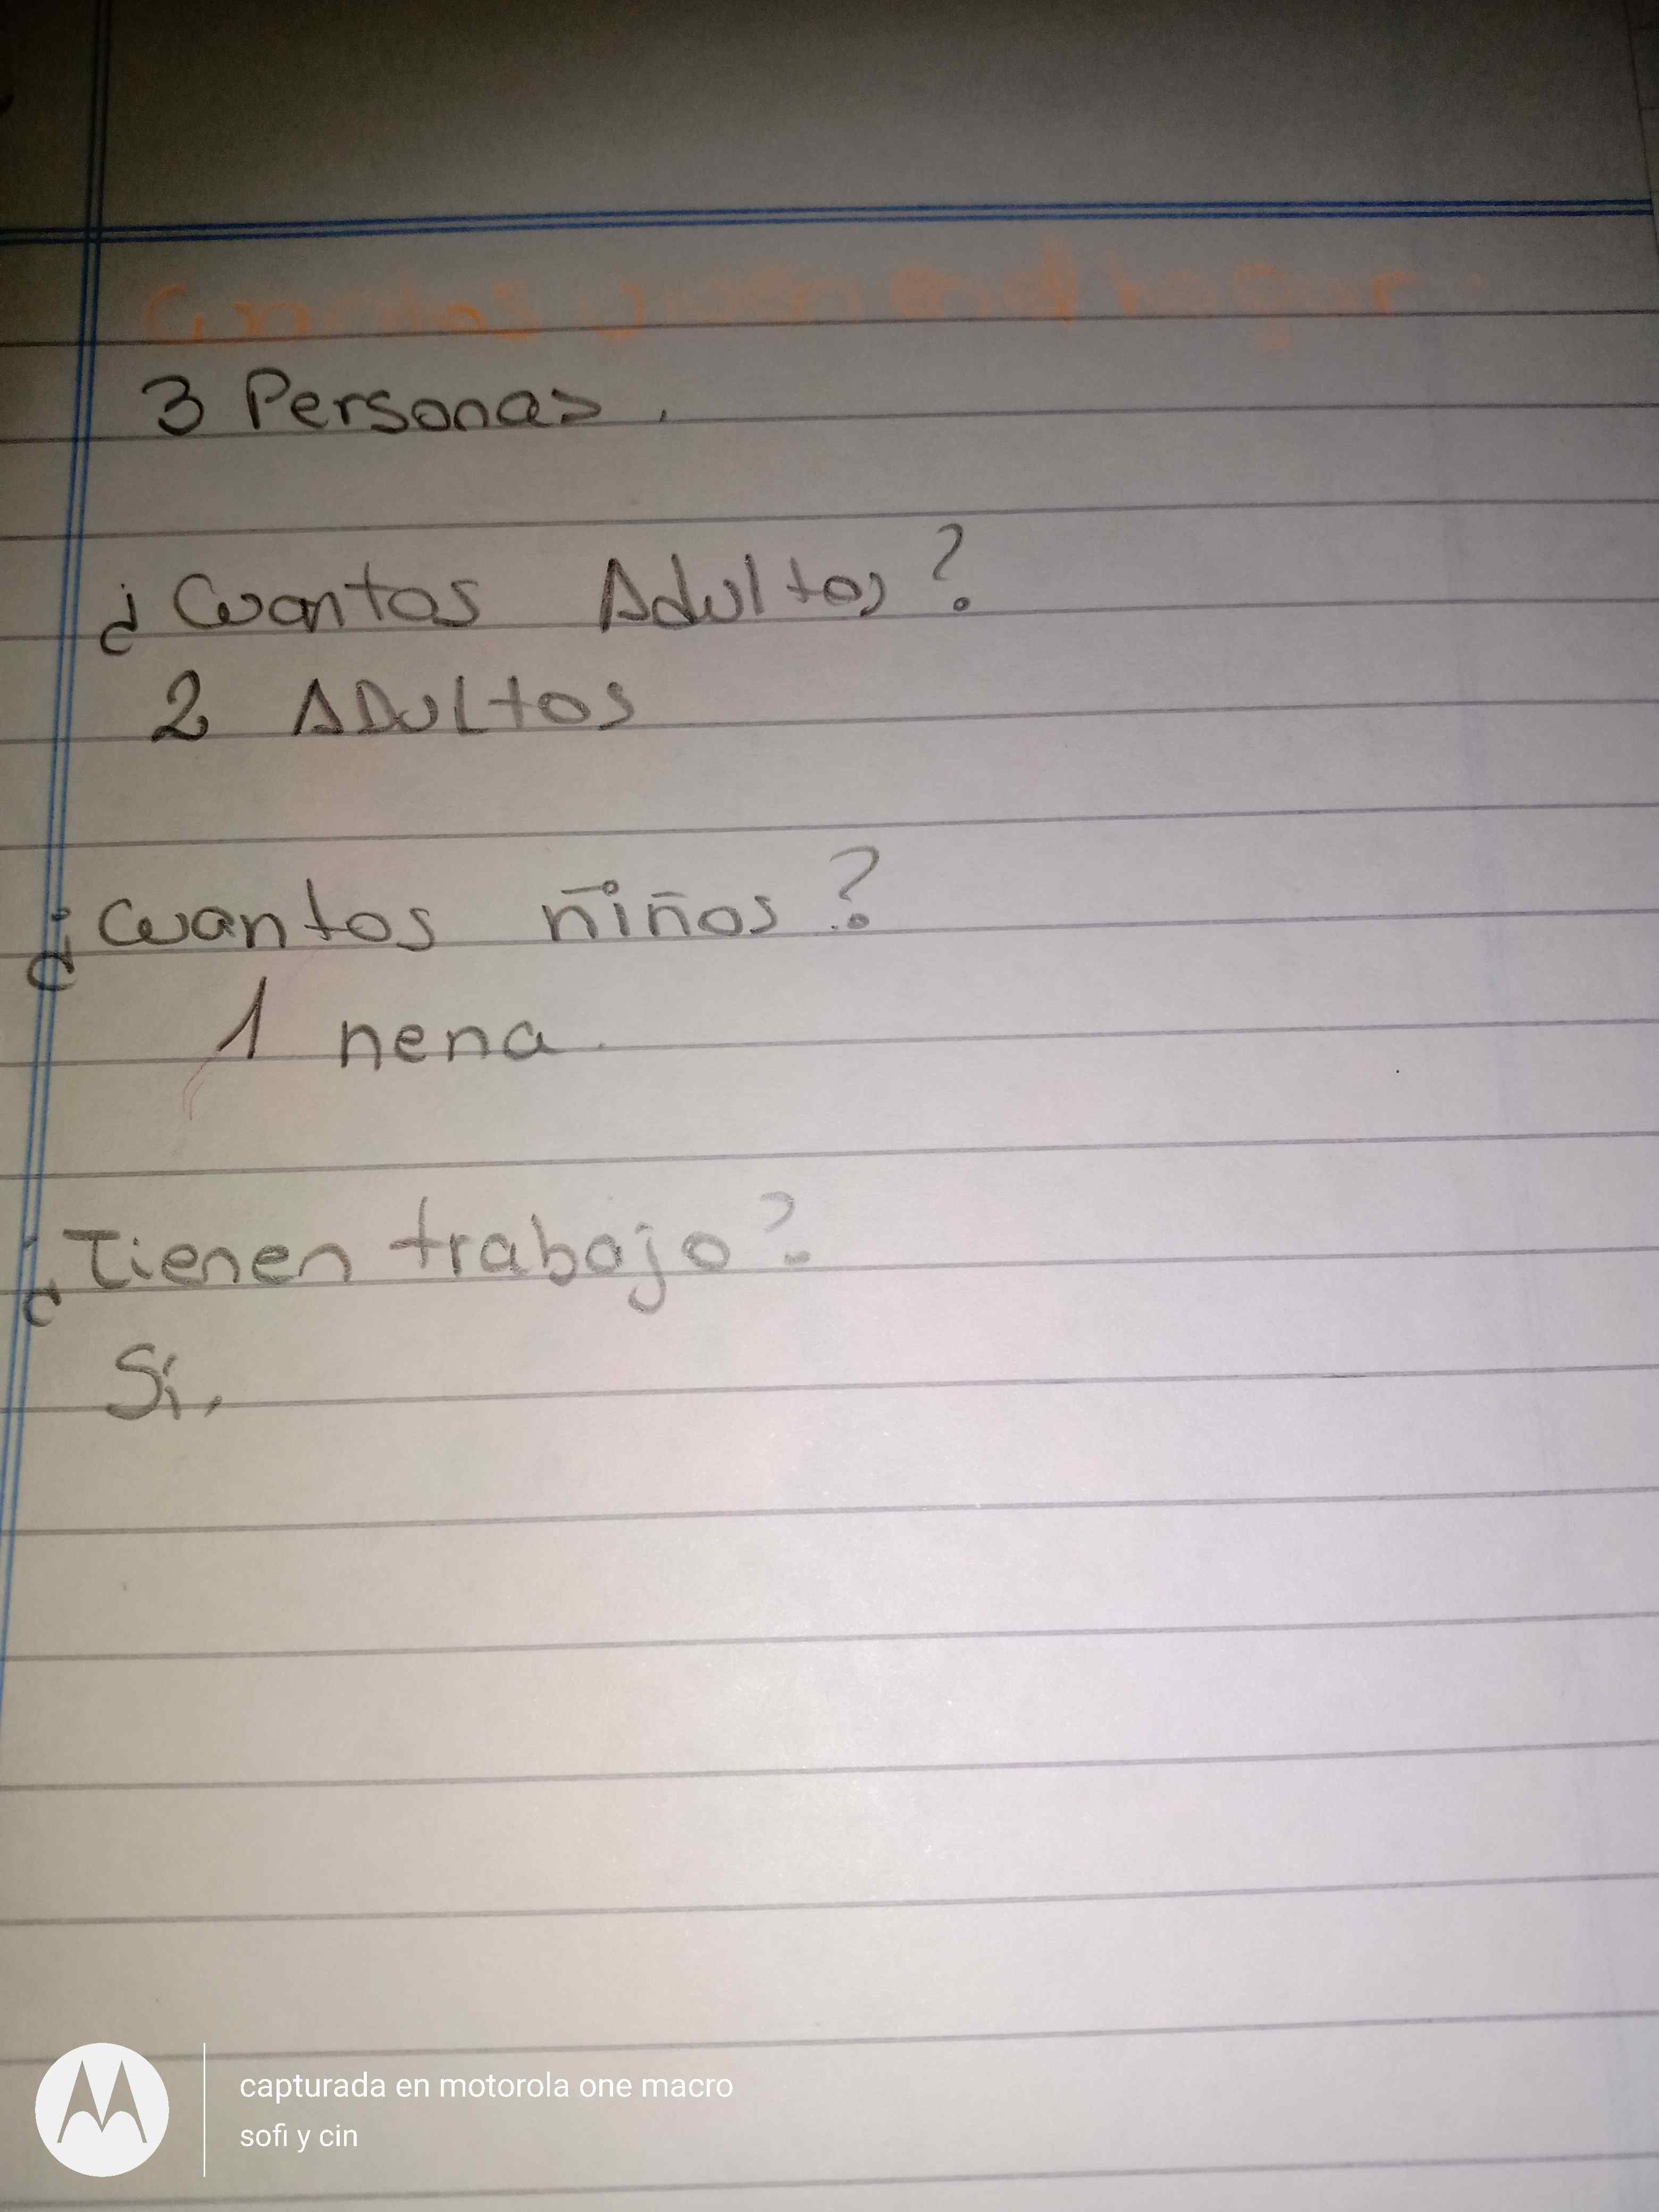 Cuantos viven en el hogar.
3 Personas.
¿Cuantos Adultos?
2 ADULtos
¿Cuantos niños?
1 nena.
¿Tienen trabajo?
Si.
capturada en motorola one macro
sofi y cin